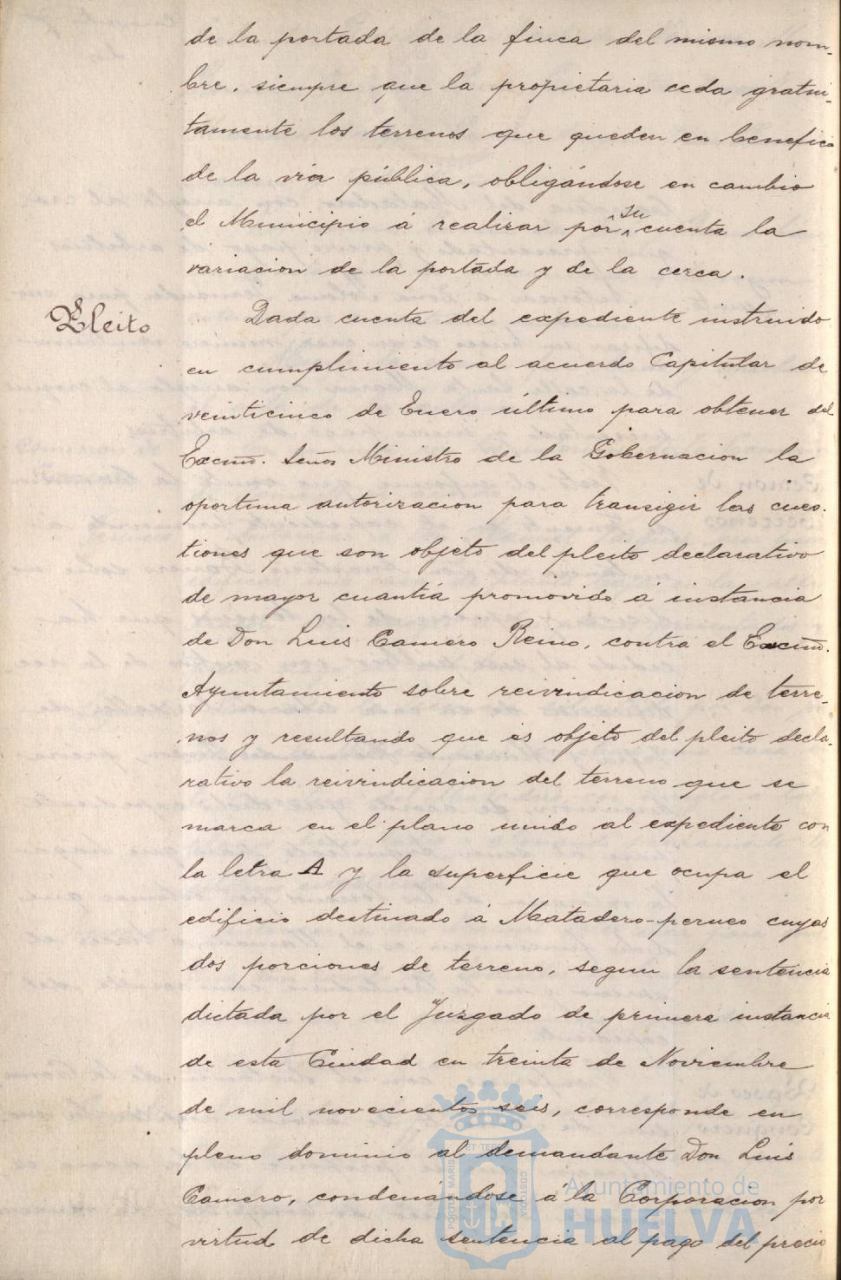 de la portada de la finca del mismo nom-
bre, siempre que la propietaria ceda gratui-
tamente los terrenos que queden en beneficio
de la via pública, obligándose en cambio
el Municipio á realizar por su cuenta la
variacion de la portada y de la cerca.
Pleito
Dada cuenta del expediente instruido
en cumplimiento al acuerdo Capitular de
veinticinco de Enero último para obtener del
Excmo. Señor Ministro de la Gobernacion la
oportuna autorizacion para transigir las cues-
tiones que son objeto del pleito declarativo
de mayor cuantía promovido á instancia
de Don Luis Camero Reino, contra el Excmo.
Ayuntamiento sobre reivindicacion de terre-
nos y resultando que es objeto del pleito decla-
rativo la reivindicacion del terreno que se
marca en el plano unido al expediente con
la letra A y la superficie que ocupa el
edificio destinado á Matadero-perneo cuyas
dos porciones de terreno, segun la sentencia
dictada por el Juzgado de primera instancia
de esta Ciudad en treinta de Noviembre
de mil novecientos seis, corresponde en
pleno dominio al demandante Don Luis
Camero, condenándose á la Corporacion por
virtud de dicha sentencia al pago del precio
Ayuntamiento de
HUELVA